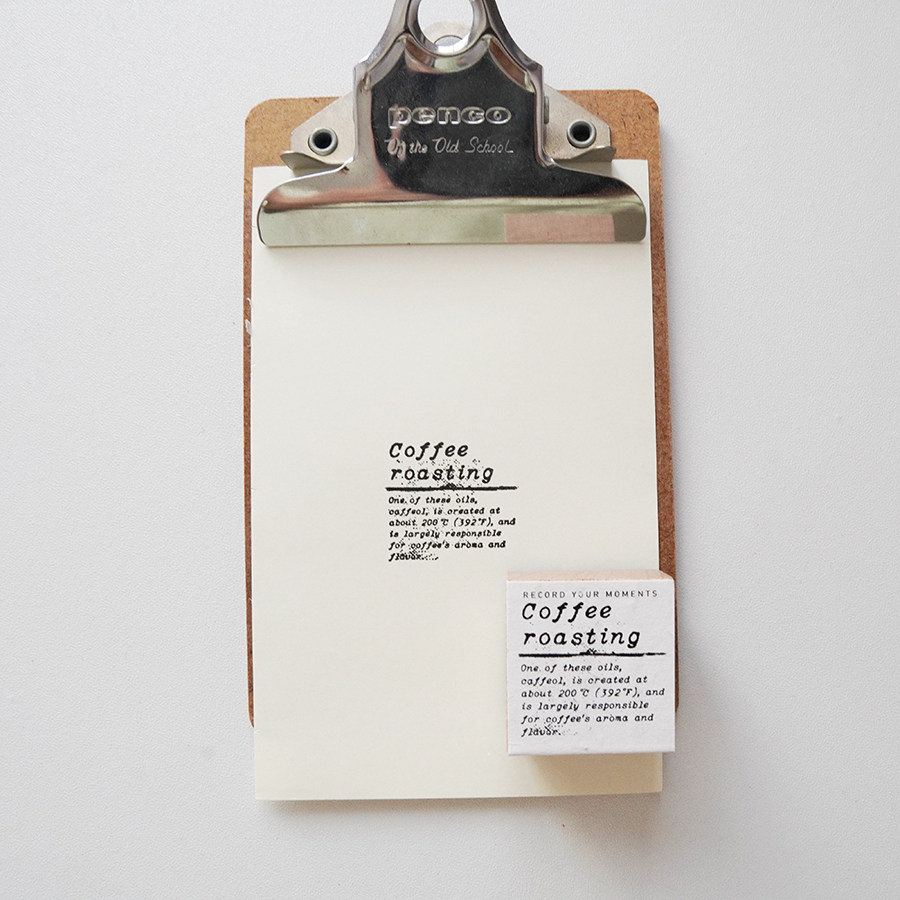 penco
Of the Old School
Coffee
roasting
One of these oils,
caffeol, is created at
about 200℃ (392℉), and
is largely responsible
for coffee's aroma and
flavor.
RECORD YOUR MOMENTS
Coffee
roasting
One of these oils,
caffeol, is created at
about 200℃ (392℉), and
is largely responsible
for coffee's aroma and
flavor.